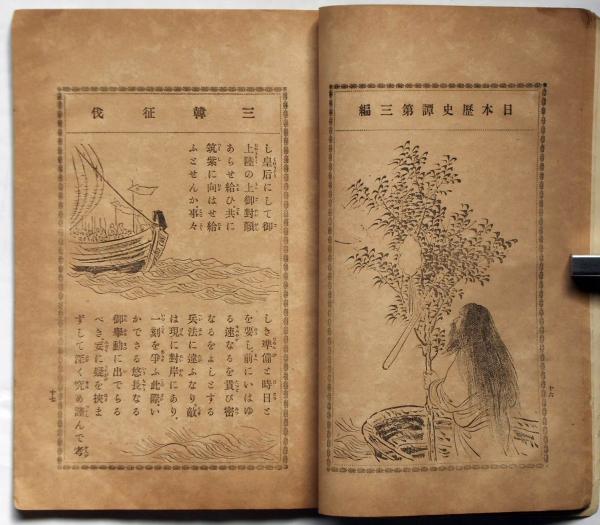 日本歴史譚第三編
十六
三韓征伐
し皇后にして御
上陸の上御對顔
あらせ給ひ共に
筑紫に向はせ給
ふとせんか事々
しき準備と時日と
を要し前にいはゆ
る速なるを貴び密
なるをよしとする
兵法に違ふなり敵
は現に對岸にあり、
一刻を爭ふ此際い
かでさる悠長なる
御擧動に出でらる
べき妄に疑を挾ま
ずして深く究め謹んで考
十七